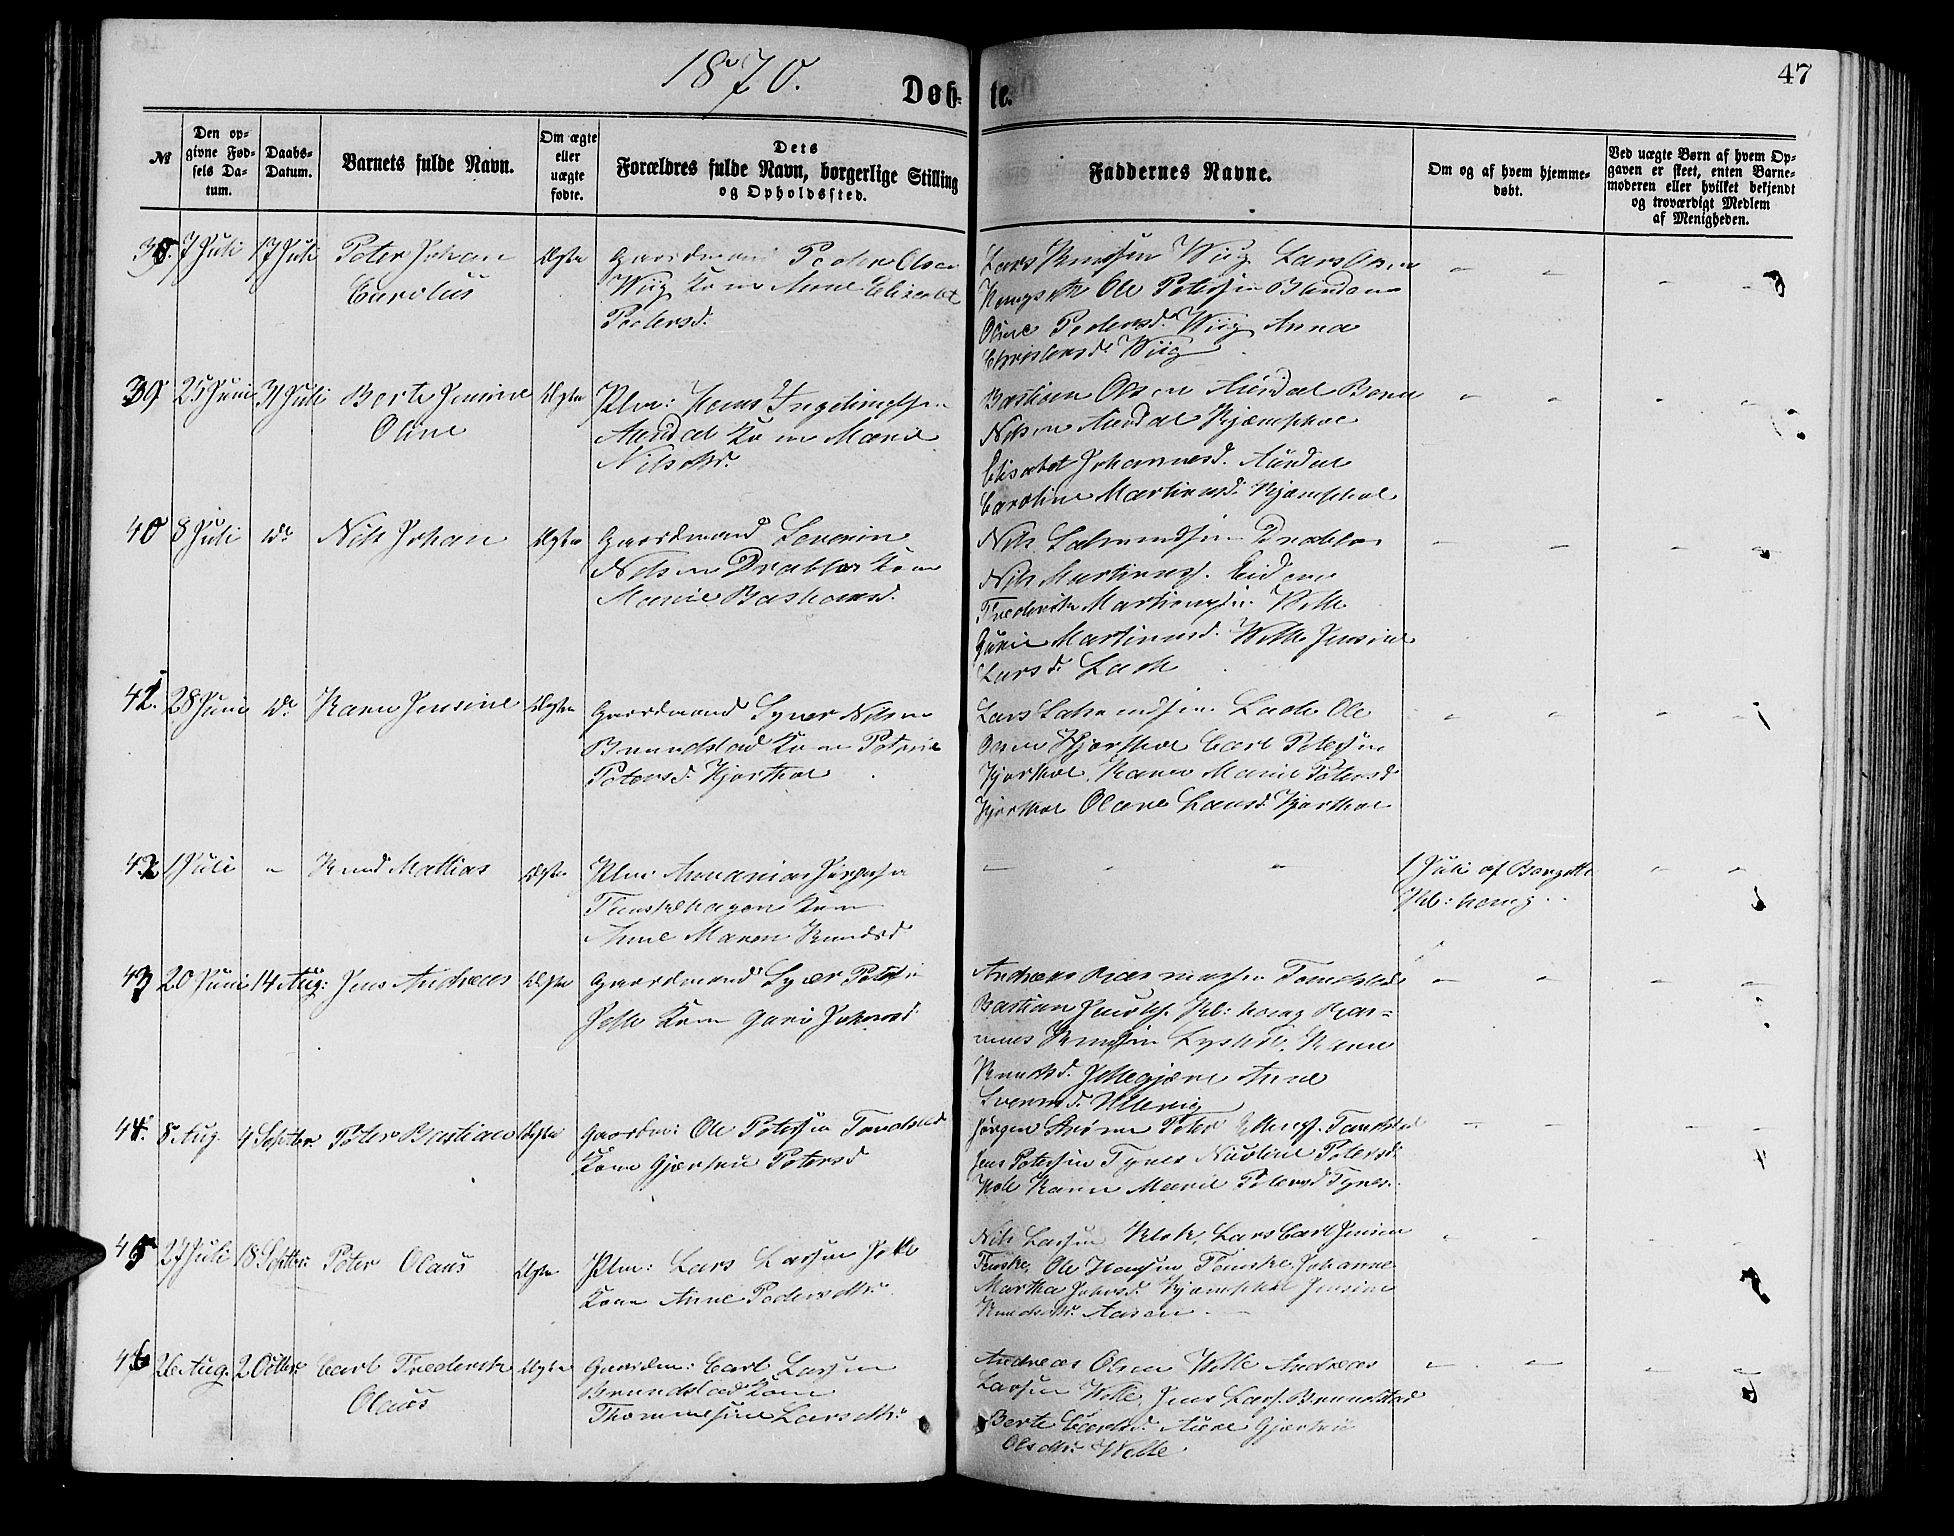 1870.
Døb-
te.
47
№
Den op-
givne Fød-
sels Da-
tum.
Daabs-
Datum.
Barnets fulde Navn.
Om ægte
eller
uægte
fødte.
Dets
Forældres fulde Navn, borgerlige Stilling
og Opholdssted.
Faddernes Navne.
Om og af hvem hjemme-
døbt.
Ved uægte Børn af hvem Op-
gaven er skeet, enten Barne-
moderen eller hvilket bekjendt
og troværdigt Medlem
af Menigheden.
38. 7 Juli 17 Juli Peter Johan
Carolus
Ægte
Gaardmand Peder Olsen
Wiig Kone Anne Elisabet
Pedersd.
Lars Knudsen Wiig Lars Olsen
Ole Petersen
Oline Pedersd. Wiig Anna
Wiig
39 25 Juni 31 Juli Berte Jensine
Oline
Ægte
Plm: Hans Ingebrigtsen
Aursdal Kone Marie
Nilsdtr.
Bastian Olsen Aursdal Bernt
Nilsen Aursdal Kjæmphol
Elisabet Johannesd. Aursdal
Caroline Martinusd. Kjæmphol
40 8 Juli Do Nils Johan
Ægte
Gaardmand Severin
Nilsen Drabløs Kone
Marie Bastiansd.
Nils Salamonsen Drabløs
Nils Martinus. Eidem
Frederik Martinusen Welle
Gurie Martinusd. Welle Jensine
Larsd. Lade
41. 28 Juni Do Karen Jensine
Ægte
Gaardmand Syver Nilsen
Brundstad Kone Petrine
Petersd. Hjorthol
Lars Salamonsen Lade Ole
Olsen Hjorthol Carl Petersen
Hjorthol, Karen Marie Petersd.
Hjorthol Olave Larsd. Hjorthol
42 1 Juli - Knud Mathias
Ægte
Plm: Ananias Jørgensen
Fauskehagen Kone
Anne Maren Knudsd
1 Juli af Bangotte
Kl: haug
43 20 Juni 14 Aug: Jens Andreas
Ægte
Gaardmand Syver Petersen
Jelle Kone Guri Johansd.
Andreas Rasmussen Tandstad
Bastian Kl: haug Ras-
mus Knudsen Lyshol, Karen
Knudsd. Jellegjære Anne
Syversd. Ullevig
44. 8 Aug. 4 Septbr Peter Bastian
Ægte
Gaardm: Ole Petersen Tandstad
Kone Gjertrue Petersd
Jørgen Strøm Peter Ellings. Tandstad
Jens Petersen Tynes Nicoline Petersd.
Hole Karen Marie Petersd Tynes.
45 27 Juli 18 Septbr: Peter Olaus
Ægte
Plm: Lars Larsen Jelle
Kone Anne Pedersdtr:
Nils Larsen Klok, Lars Carl Jensen
Fauske, Ole Hansen Fauske, Johanne
Martha Johsd. Kjæmphol Jensine
Knudsdtr. Aasen
46 26 Aug. 2 Octbr: Carl Frederik
Olaus
Ægte
Gaardm: Carl Larsen
Brundstad Kone
Thomassine Larsdtr:
Andreas Olsen Welle Andreas
Larsen Welle, Jens Lars. Brundstad
Berte Carlsd. Aure Gjertrue
Olsdtr. Welle